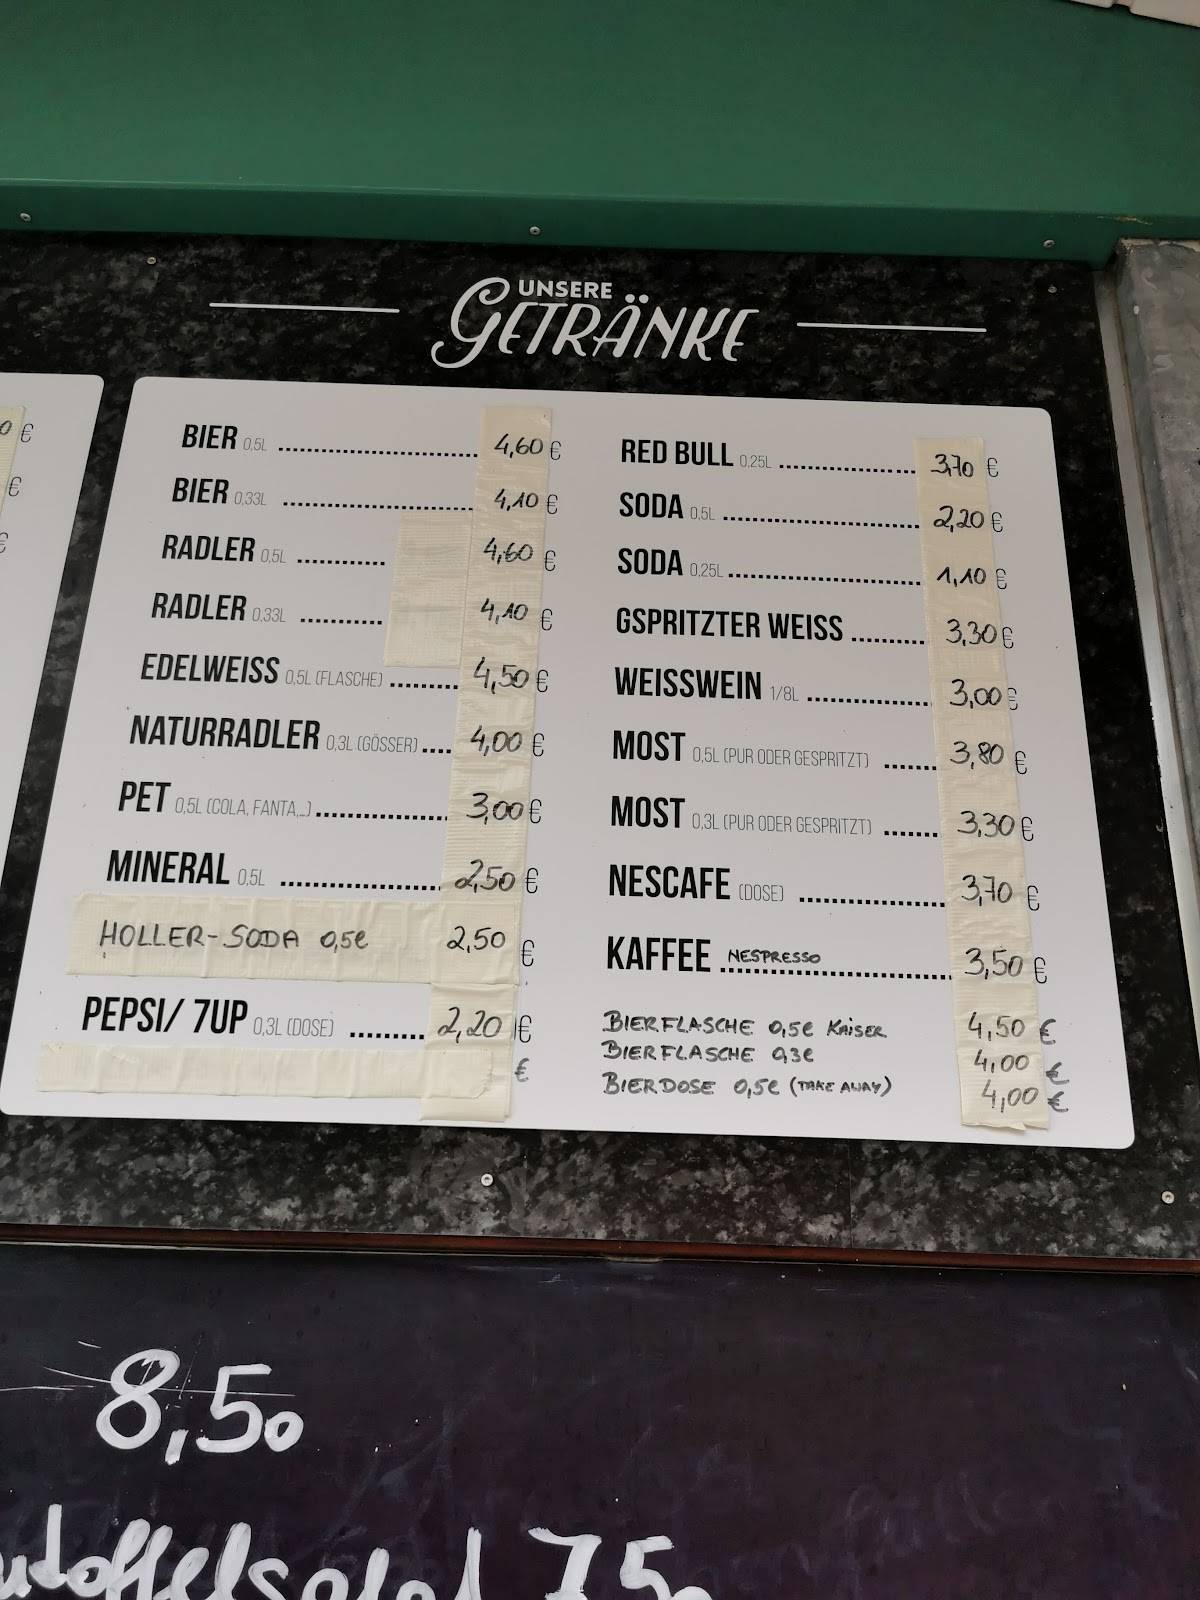 UNSERE
GETRÄNKE
BIER 0,5L 4,60 €
BIER 0,33L 4,10 €
RADLER 0,5L 4,60 €
RADLER 0,33L 4,10 €
EDELWEISS 0,5L (FLASCHE) 4,50 €
NATURRADLER 0,3L (GÖSSER) 4,00 €
PET 0,5L (COLA, FANTA,...) 3,00 €
MINERAL 0,5L 2,50 €
HOLLER-SODA 0,5l 2,50 €
PEPSI/ 7UP 0,3L (DOSE) 2,20 €
€
RED BULL 0,25L 3,70 €
SODA 0,5L 2,20 €
SODA 0,25L 1,10 €
GSPRITZTER WEISS 3,30 €
WEISSWEIN 1/8L 3,00 €
MOST 0,5L (PUR ODER GESPRITZT) 3,80 €
MOST 0,3L (PUR ODER GESPRITZT) 3,30 €
NESCAFE (DOSE) 3,70 €
KAFFEE NESPRESSO 3,50 €
BIERFLASCHE 0,5l KAISER 4,50 €
BIERFLASCHE 0,3l 4,00 €
BIERDOSE 0,5l (TAKE AWAY) 4,00 €
0 €
€
€
8,50